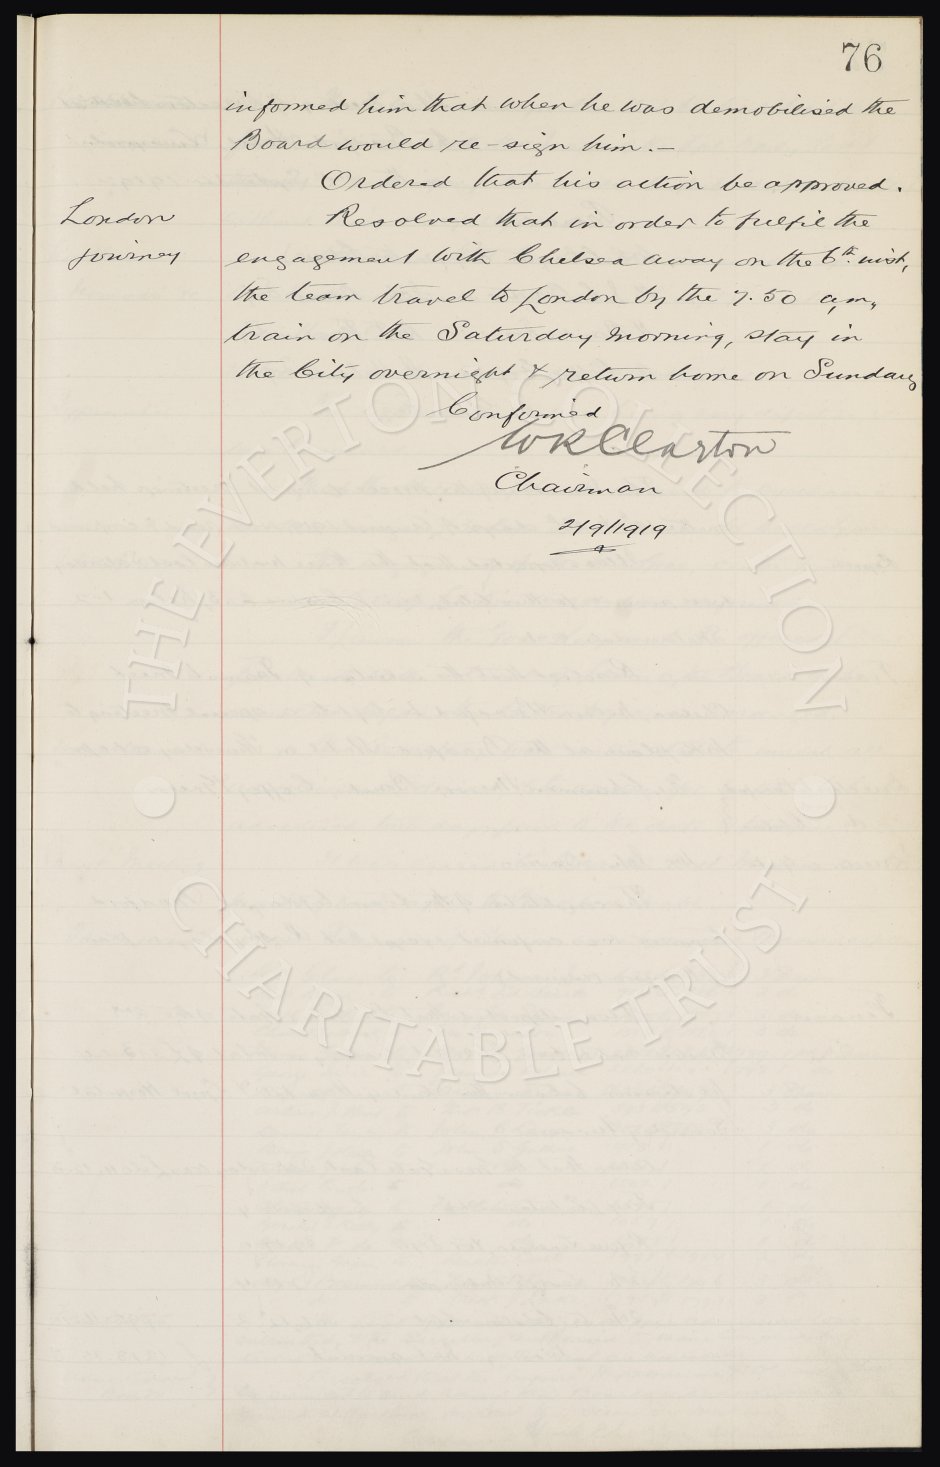 76
informed him that when he was demobilised the
Board would re-sign him. –
Ordered that his action be approved.
London
journey
Resolved that in order to fulfil the
engagement with Chelsea away on the 6th inst,
the team travel to London by the 7.50 a.m.,
train on the Saturday morning, stay in
the City overnight & return home on Sunday
Confirmed
WRClayton
Chairman
2/9/1919
THE EVERTON COLLECTION
CHARITABLE TRUST